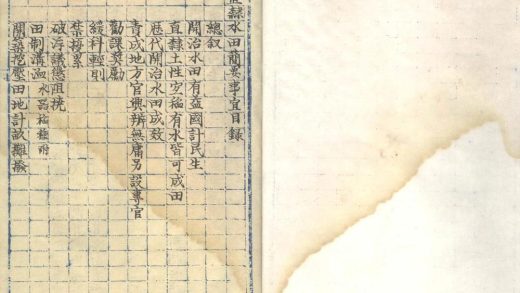 直隸水田簡要事宜目錄
總叙
開治水田有益國計民生
直隸土性宜稻有水皆可成田
歷代開治水田成效
責成地方官興辦無庸另設專官
勸課獎勵
緩科輕則
禁擾累
破浮議懲阻撓
田制溝洫水器稻種附
開築挖壓田地計畝攤撥